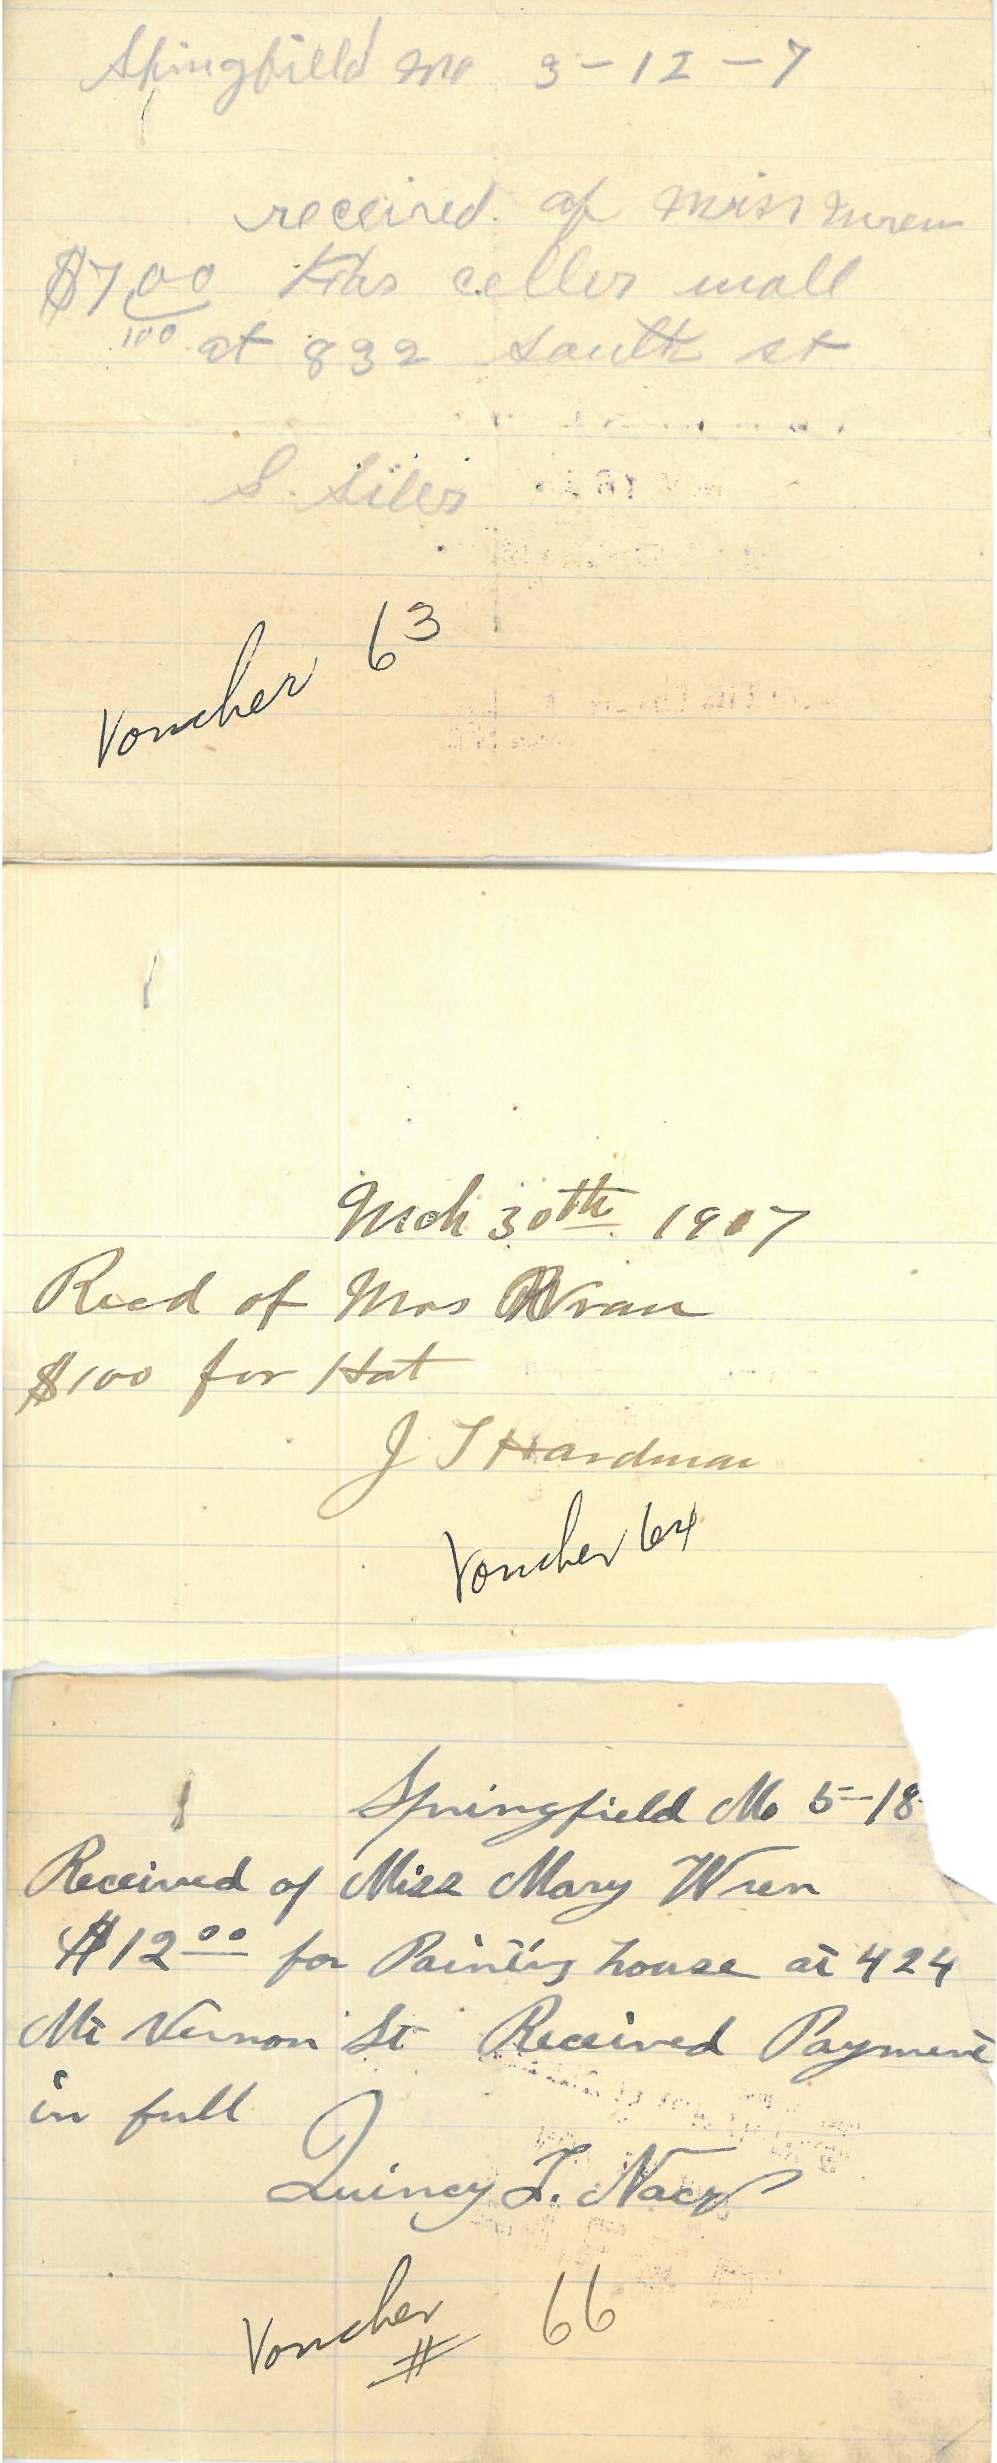 Springfield Mo 3-12-7
received. of miss wren
$7,00/100 celler wall
at 832 South st
S. Siler
Voucher 63
Mch 30th 1907
Recd of Mrs Wran
$100 for Hat
J T Hardman
Voucher 64
Springfield Mo 5-18
Received of Miss Mary Wren
$12 00 for Painting house at 424
Mt Vernon St Received Payment
in full
Quincy T.
Voucher # 66